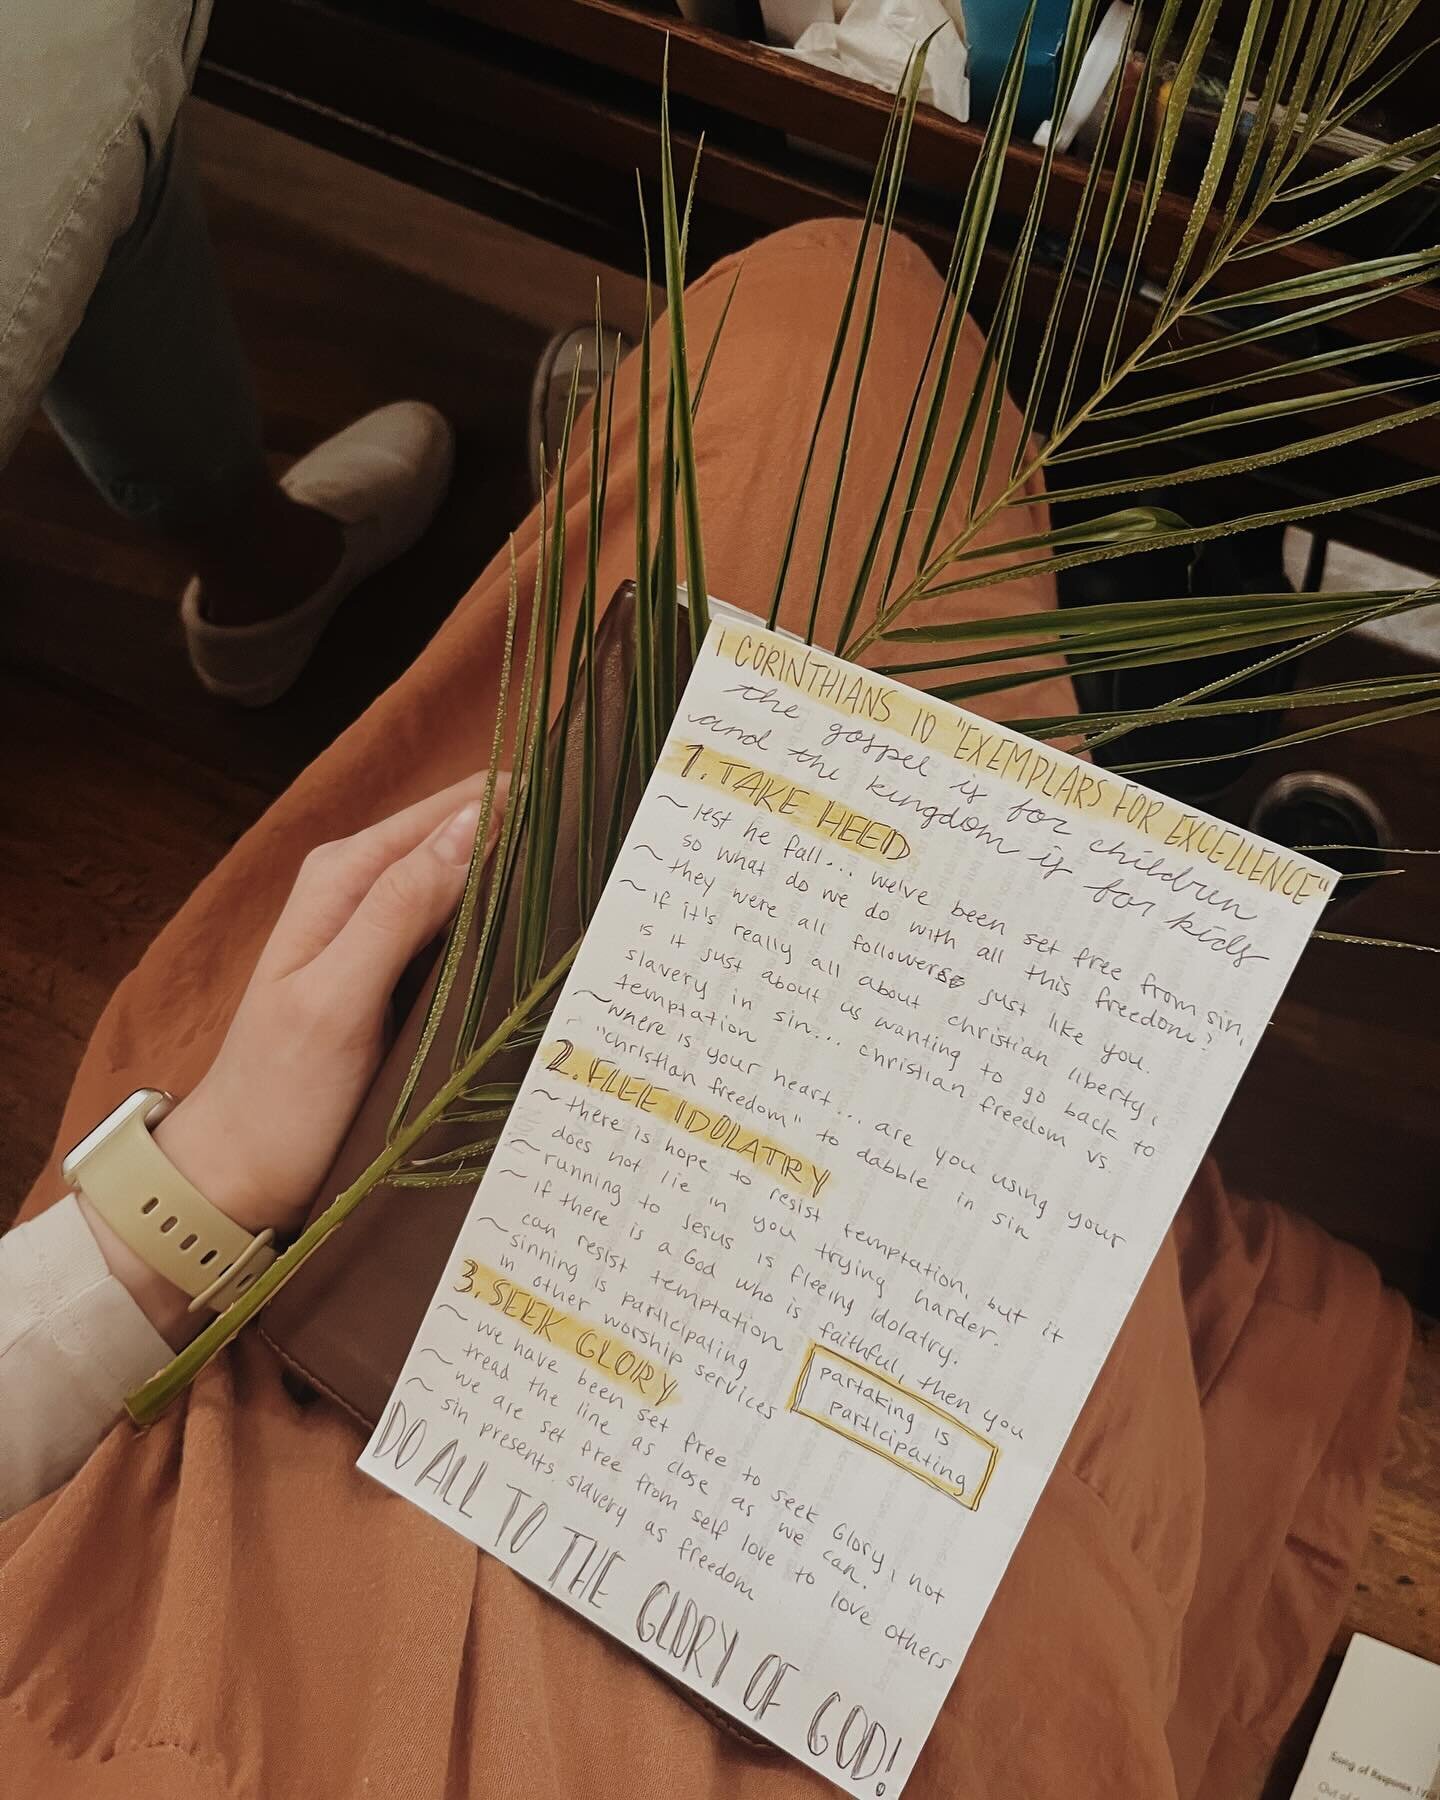 1 CORINTHIANS 10 "EXEMPLARS FOR EXCELLENCE"
the gospel is for children
and the kingdom is for kids
1. TAKE HEED
~ lest he fall... we've been set free from sin,
so what do we do with all this freedom?
~ they were all followers just like you.
~ if it's really all about christian liberty,
is it just about us wanting to go back to
slavery in sin... christian freedom vs.
temptation
~ where is your heart... are you using your
"christian freedom" to dabble in sin
2. FLEE IDOLATRY
~ there is hope to resist temptation, but it
does not lie in you trying harder.
~ running to Jesus is fleeing idolatry.
~ if there is a God who is faithful, then you
can resist temptation
~ sinning is participating
in other worship services
partaking is
participating
3. SEEK GLORY
~ we have been set free to seek Glory, not
tread the line as close as we can.
~ we are set free from self love to love others
~ sin presents slavery as freedom
DO ALL TO THE GLORY OF GOD!
Song of Response
Out of